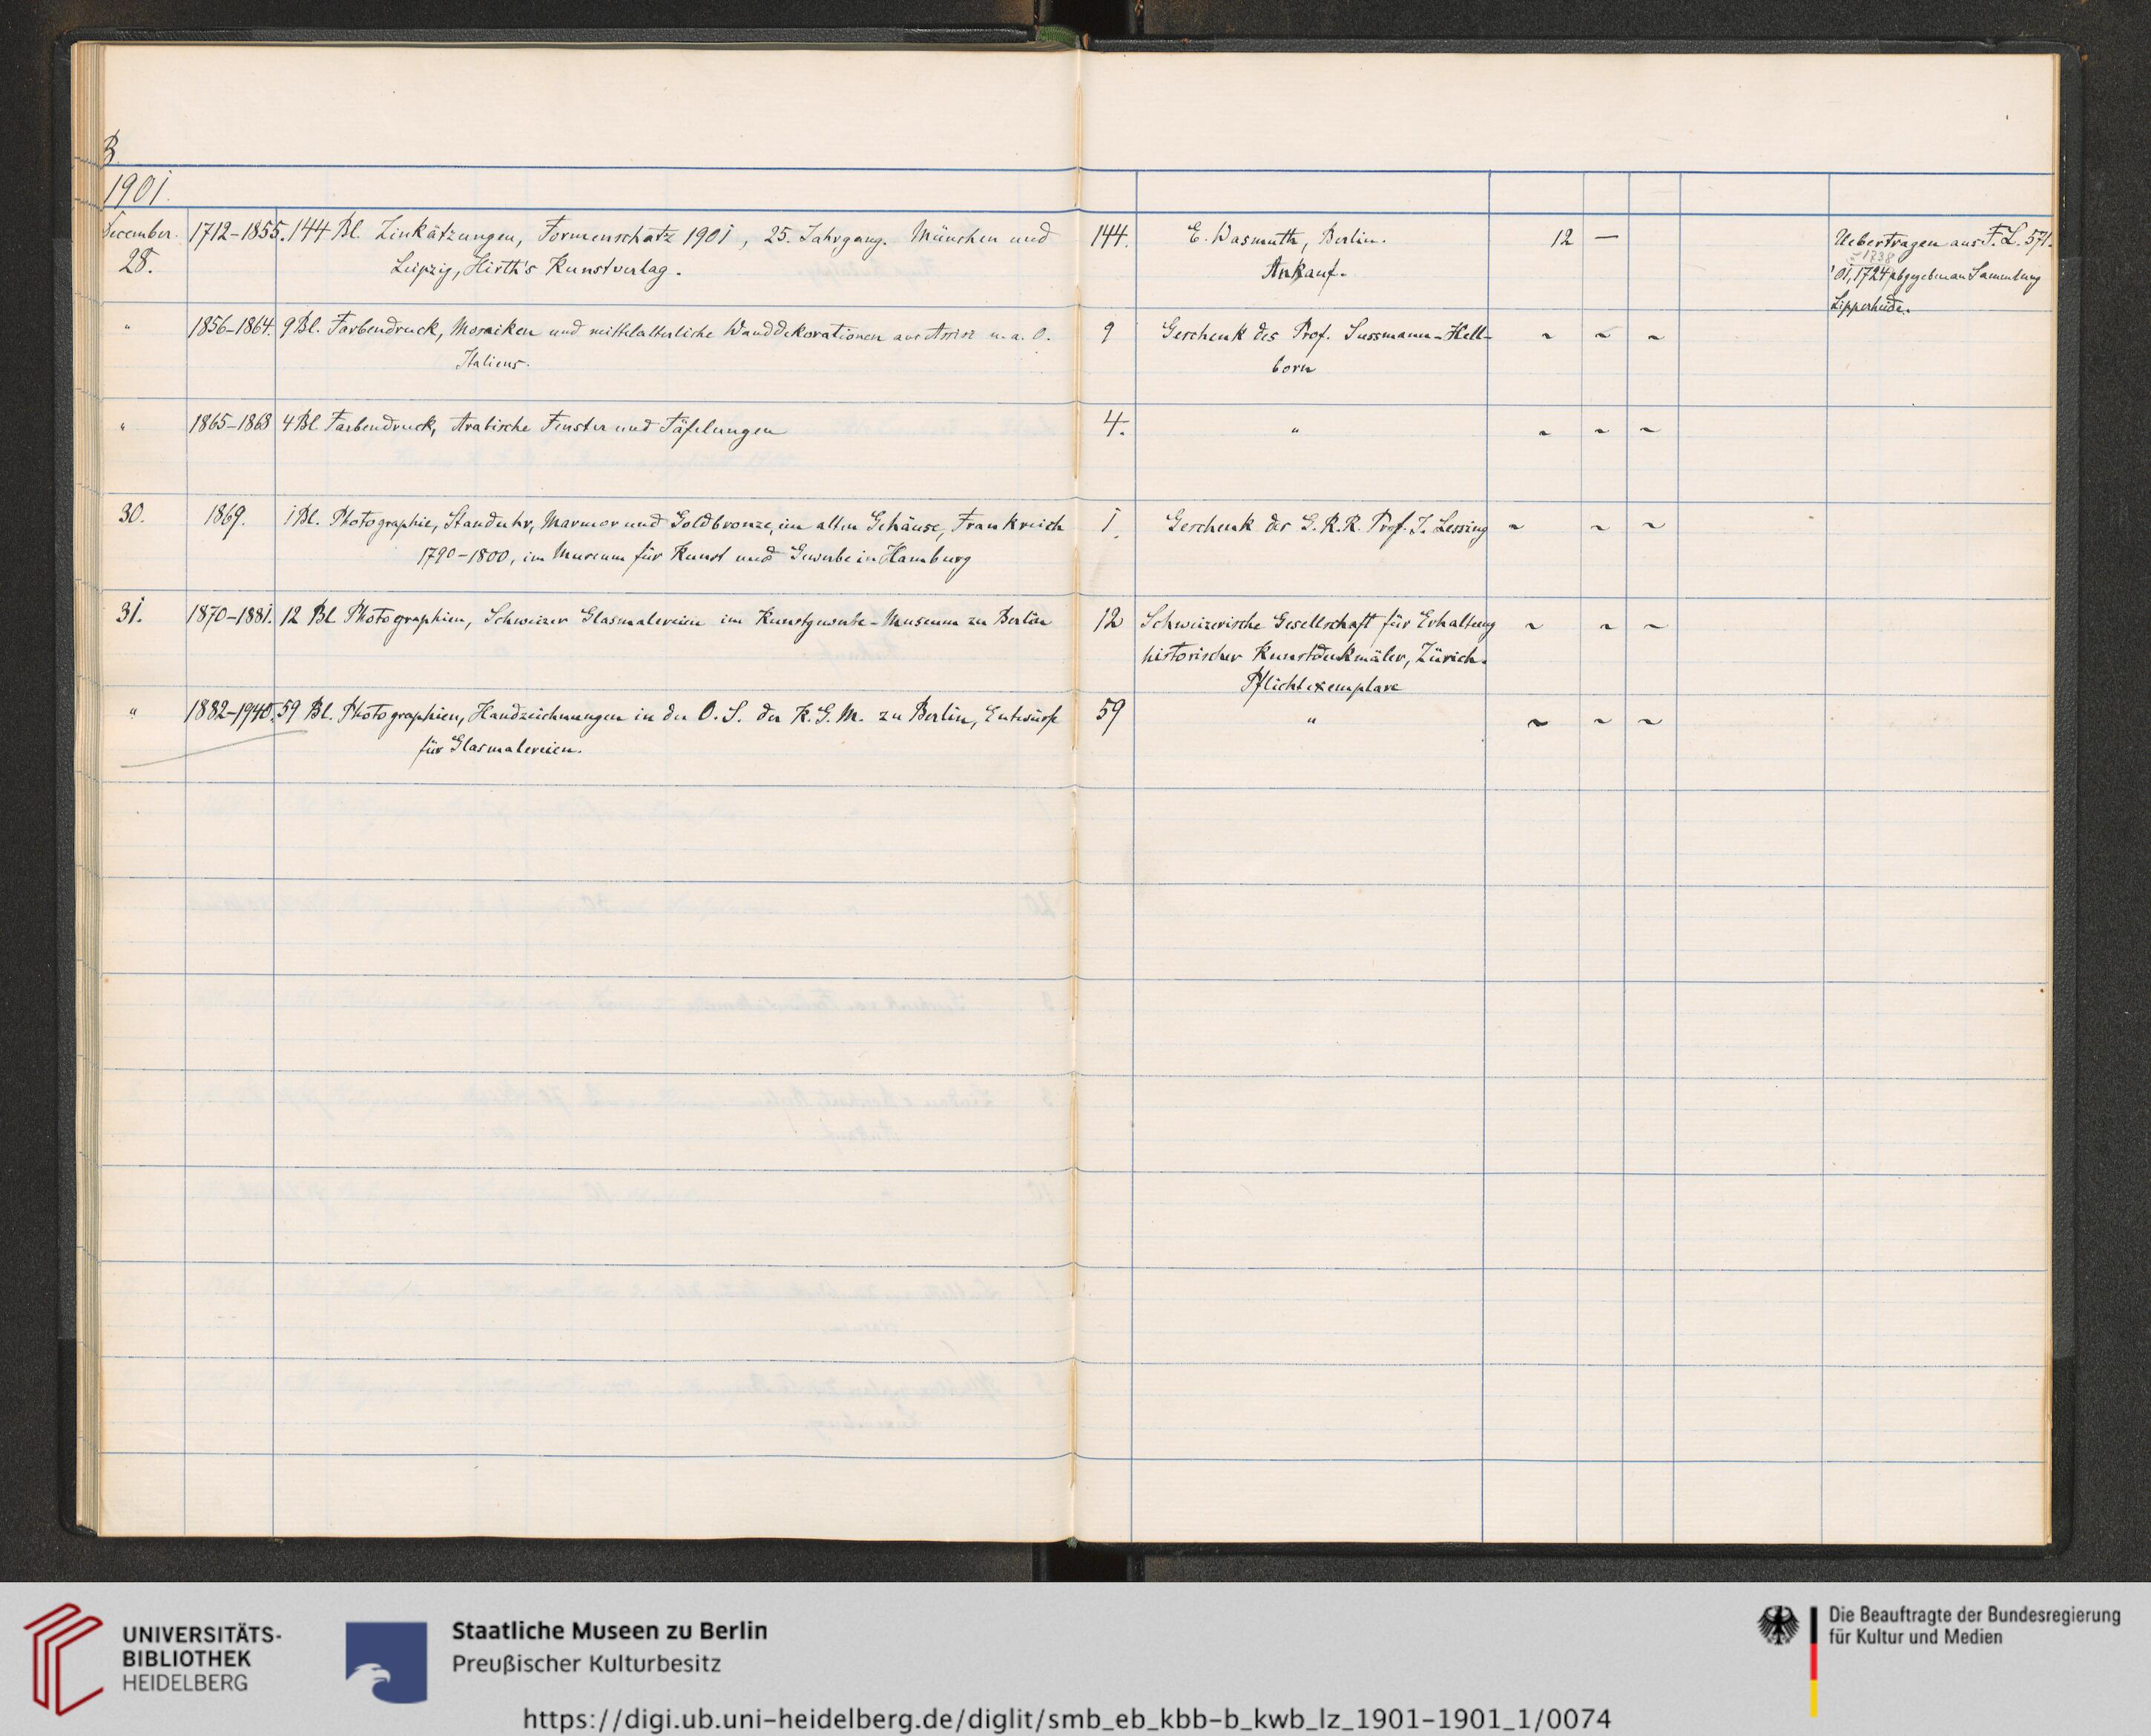 B
1901.
December 28. 1712-1855. 144 Bl. Zinkätzungen, Formenschatz 1901, 25. Jahrgang. München und 144. E. Wasmuth, Berlin. 12 — Uebertragen aus F. L. 571.
Leipzig, Hirth's Kunstverlag. Ankauf. '01,1724 abgegeben an Sammlung
1738
Lipperheide.
" 1856-1864. 9 Bl. Farbendruck, Mosaiken und mittelalterliche Wanddekorationen aus Assisi u. a. O. 9 Geschenk des Prof. Sussmann-Hell- ~ ~ ~
Italiens. born
" 1865-1868 4 Bl Farbendruck, Arabische Fenster und Täfelungen 4. " ~ ~ ~
30. 1869. 1 Bl. Photographie, Standuhr, Marmor und Goldbronze, im alten Gehäuse, Frankreich 1. Geschenk des G. R. R. Prof. J. Lessing ~ ~ ~
1790-1800, im Museum für Kunst und Gewerbe in Hamburg
31. 1870-1881. 12 Bl. Photographien, Schweizer Glasmalereien im Kunstgewerbe-Museum zu Berlin 12 Schweizerische Gesellschaft für Erhaltung ~ ~ ~
historischer Kunstdenkmäler, Zürich.
Pflichtexemplare
" 1882-1940. 59 Bl. Photographien, Handzeichnungen in der O. S. des K. G. M. zu Berlin, Entwürfe 59 " ~ ~ ~
für Glasmalereien.
UNIVERSITÄTS-
BIBLIOTHEK
HEIDELBERG
Staatliche Museen zu Berlin
Preußischer Kulturbesitz
Die Beauftragte der Bundesregierung
für Kultur und Medien
https://digi.ub.uni-heidelberg.de/diglit/smb_eb_kbb-b_kwb_lz_1901-1901_1/0074